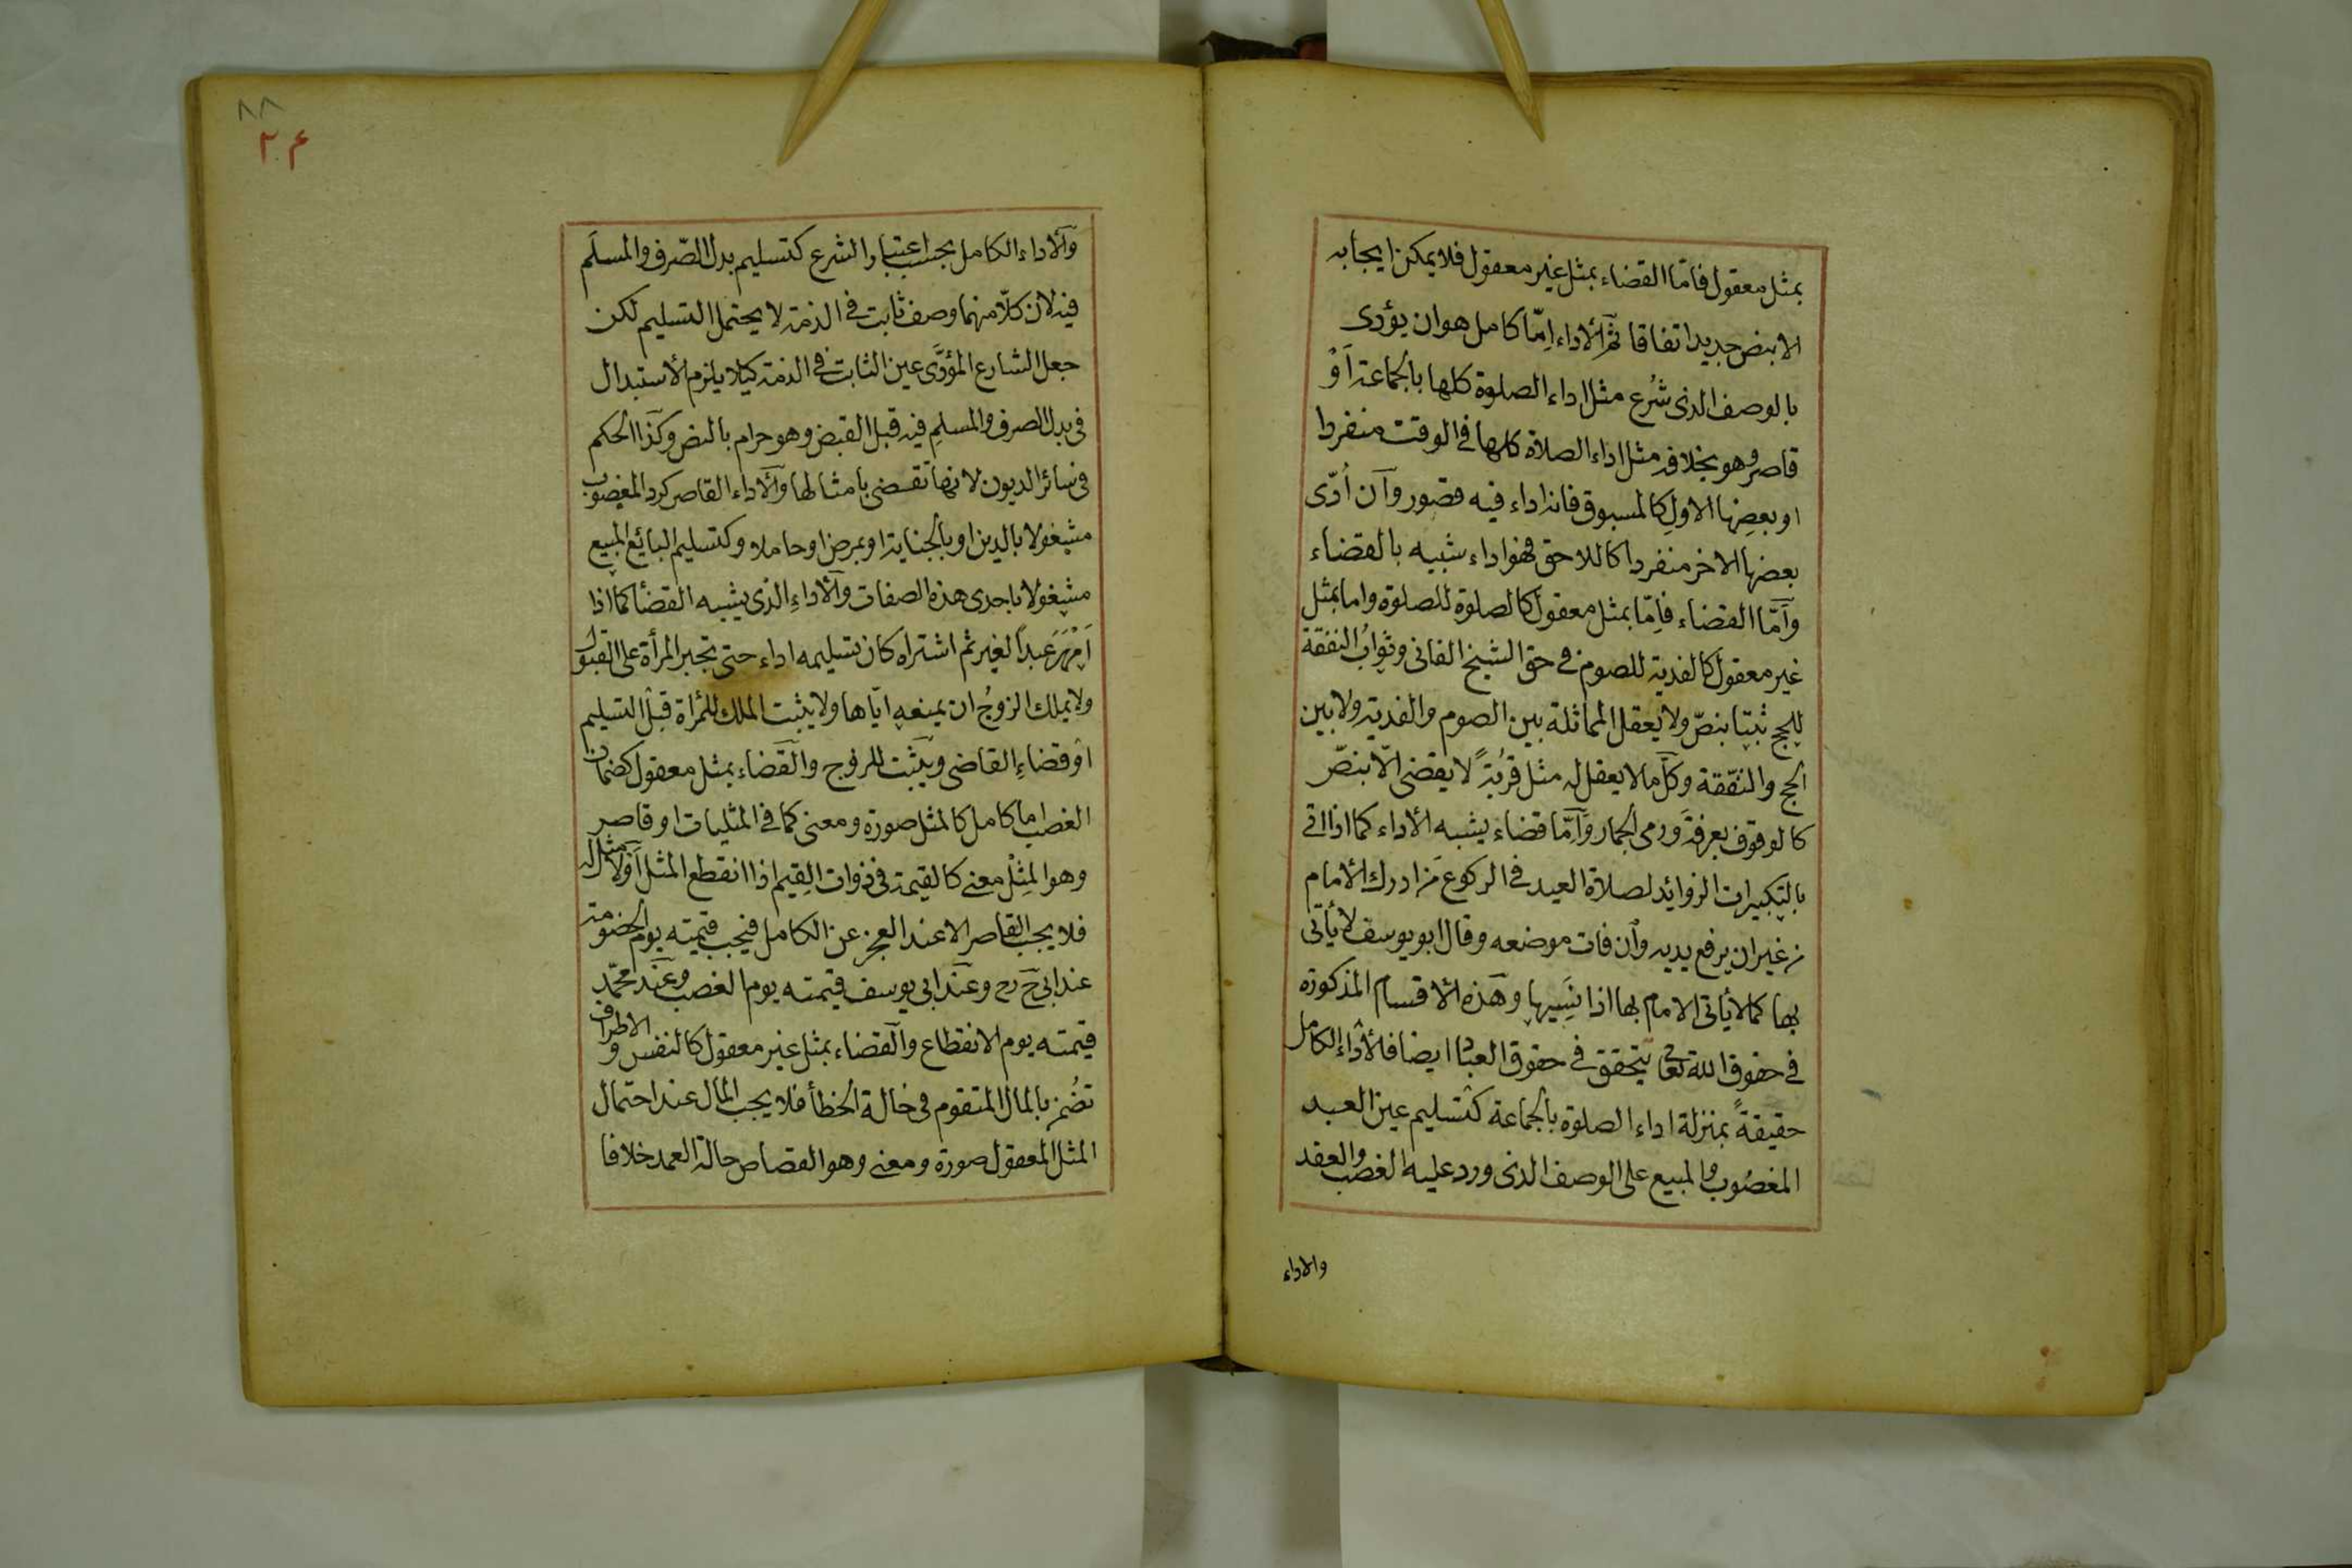 بمثل معقول فامّا القضاء بمثل غير معقول فلا يمكن ايجابه
الا بنص جديد اتفاقا ثم الأداء اِمّا كامل هو ان يؤدى
بالوصف الذى شُرع مثل اداء الصلوة كلها بالجماعة اَوْ
قاصر وهو بخلافه مثل اداء الصلاة كلها فى الوقت منفردا
او بعضِها الاولِ كالمسبوق فانه اداء فيه قصور وآن اُدّى
بعضها الاخر منفردا كاللاحق فهو اداء شبيه بالقضاء
وآمّا القضاء فاِمّا بمثل معقول كالصلوة للصلوة واما بمثل
غير معقول كالفدية للصوم فى حق الشيخ الفانى وثوابُ النفقة
للحج ثبتا بنصّ ولا يعقل المماثلة بين الصوم والفدية ولا بين
الحج والنفقة وكل ما لا يعقل له مثل قربةً لا يقضى الّا بنصّ
كالوقوف بعرفةَ ورمى الجمار وَآمّا قضاء يشبه الأداء كما اذا اتى
بالتكبيرات الزوائد لصلاة العيد فى الركوع مَن ادرك الأمام
من غير ان يرفع يديه وآن فات موضعه وقال ابو يوسف لا يأتى
بها كما لا يأتى الامام بها اذا نَسِيها وهذه الأقسام المذكورة
فى حقوق الله تعا يتحقق فى حقوق العباد ايضا فالأداء الكامل
حقيقةً بمنزلة اداء الصلوة بالجماعة كتسليم عين العبد
المغصُوب والمبيع على الوصف الذى ورد عليه الغصب والعقد
والاداء
٨٨
٢٠۴
وآلاداء الكامل بحسب اعتبار الشرع كتسليم بدل الصّرف والمسلَم
فيه لان كلّا منهما وصف ثابت فى الذمة لا يحتمل التسليم لكن
جعل الشارع المؤدَّى عين الثابت فى الذمة كيلا يلزم الأستبدال
فى بدل الصرف والمسلمِ فيه قبل القبض وهو حرام بالنص وكذا الحكم
فى سائر الديون لانها تقضى بامثالها وآلاداء القاصر كرد المغصوب
مشغولا بالدين او بالجناية او بمرض او حاملا وكتسليم البايع المبيع
مشغولا باحدى هذه الصفات وآلأداءِ الذى يشبه القضأ كما اذا
اَمْهَرَ عبداً لغيره ثم اشتراه كان تسليمه اداء حتى تجبر المرأة على القبول
ولا يملك الزوجُ ان يمنعه ايّاها ولا يثبت الملك للمرأة قبل التسليم
اوْ قضاءِ القاضى ويَثبت للزوج والقضاء بمثل معقول كضمان
الغصب اما كامل كالمثل صورة ومعنى كما فى المثليات او قاصر
وهو المِثْل معنى كالقيمة فى ذوات القِيم اذا انقطع المثل اَوْ لا مثل له
فلا يجب القاصر الا عند العجز عن الكامل فيجب قيمته يوم الخصومة
عند ابى ح رح وعند ابى يوسف قيمته يوم الغصب وعند محمّد
قيمته يوم الانقطاع وآلقضاء بمثل غير معقول كالنفس و الاطراف
تضُمن بالمال المتقوم فى حالة الخطأ فلا يجب المال عند احتمال
المثل المعقول صورة ومعنى وهو القصاص حالة العمد خلافا